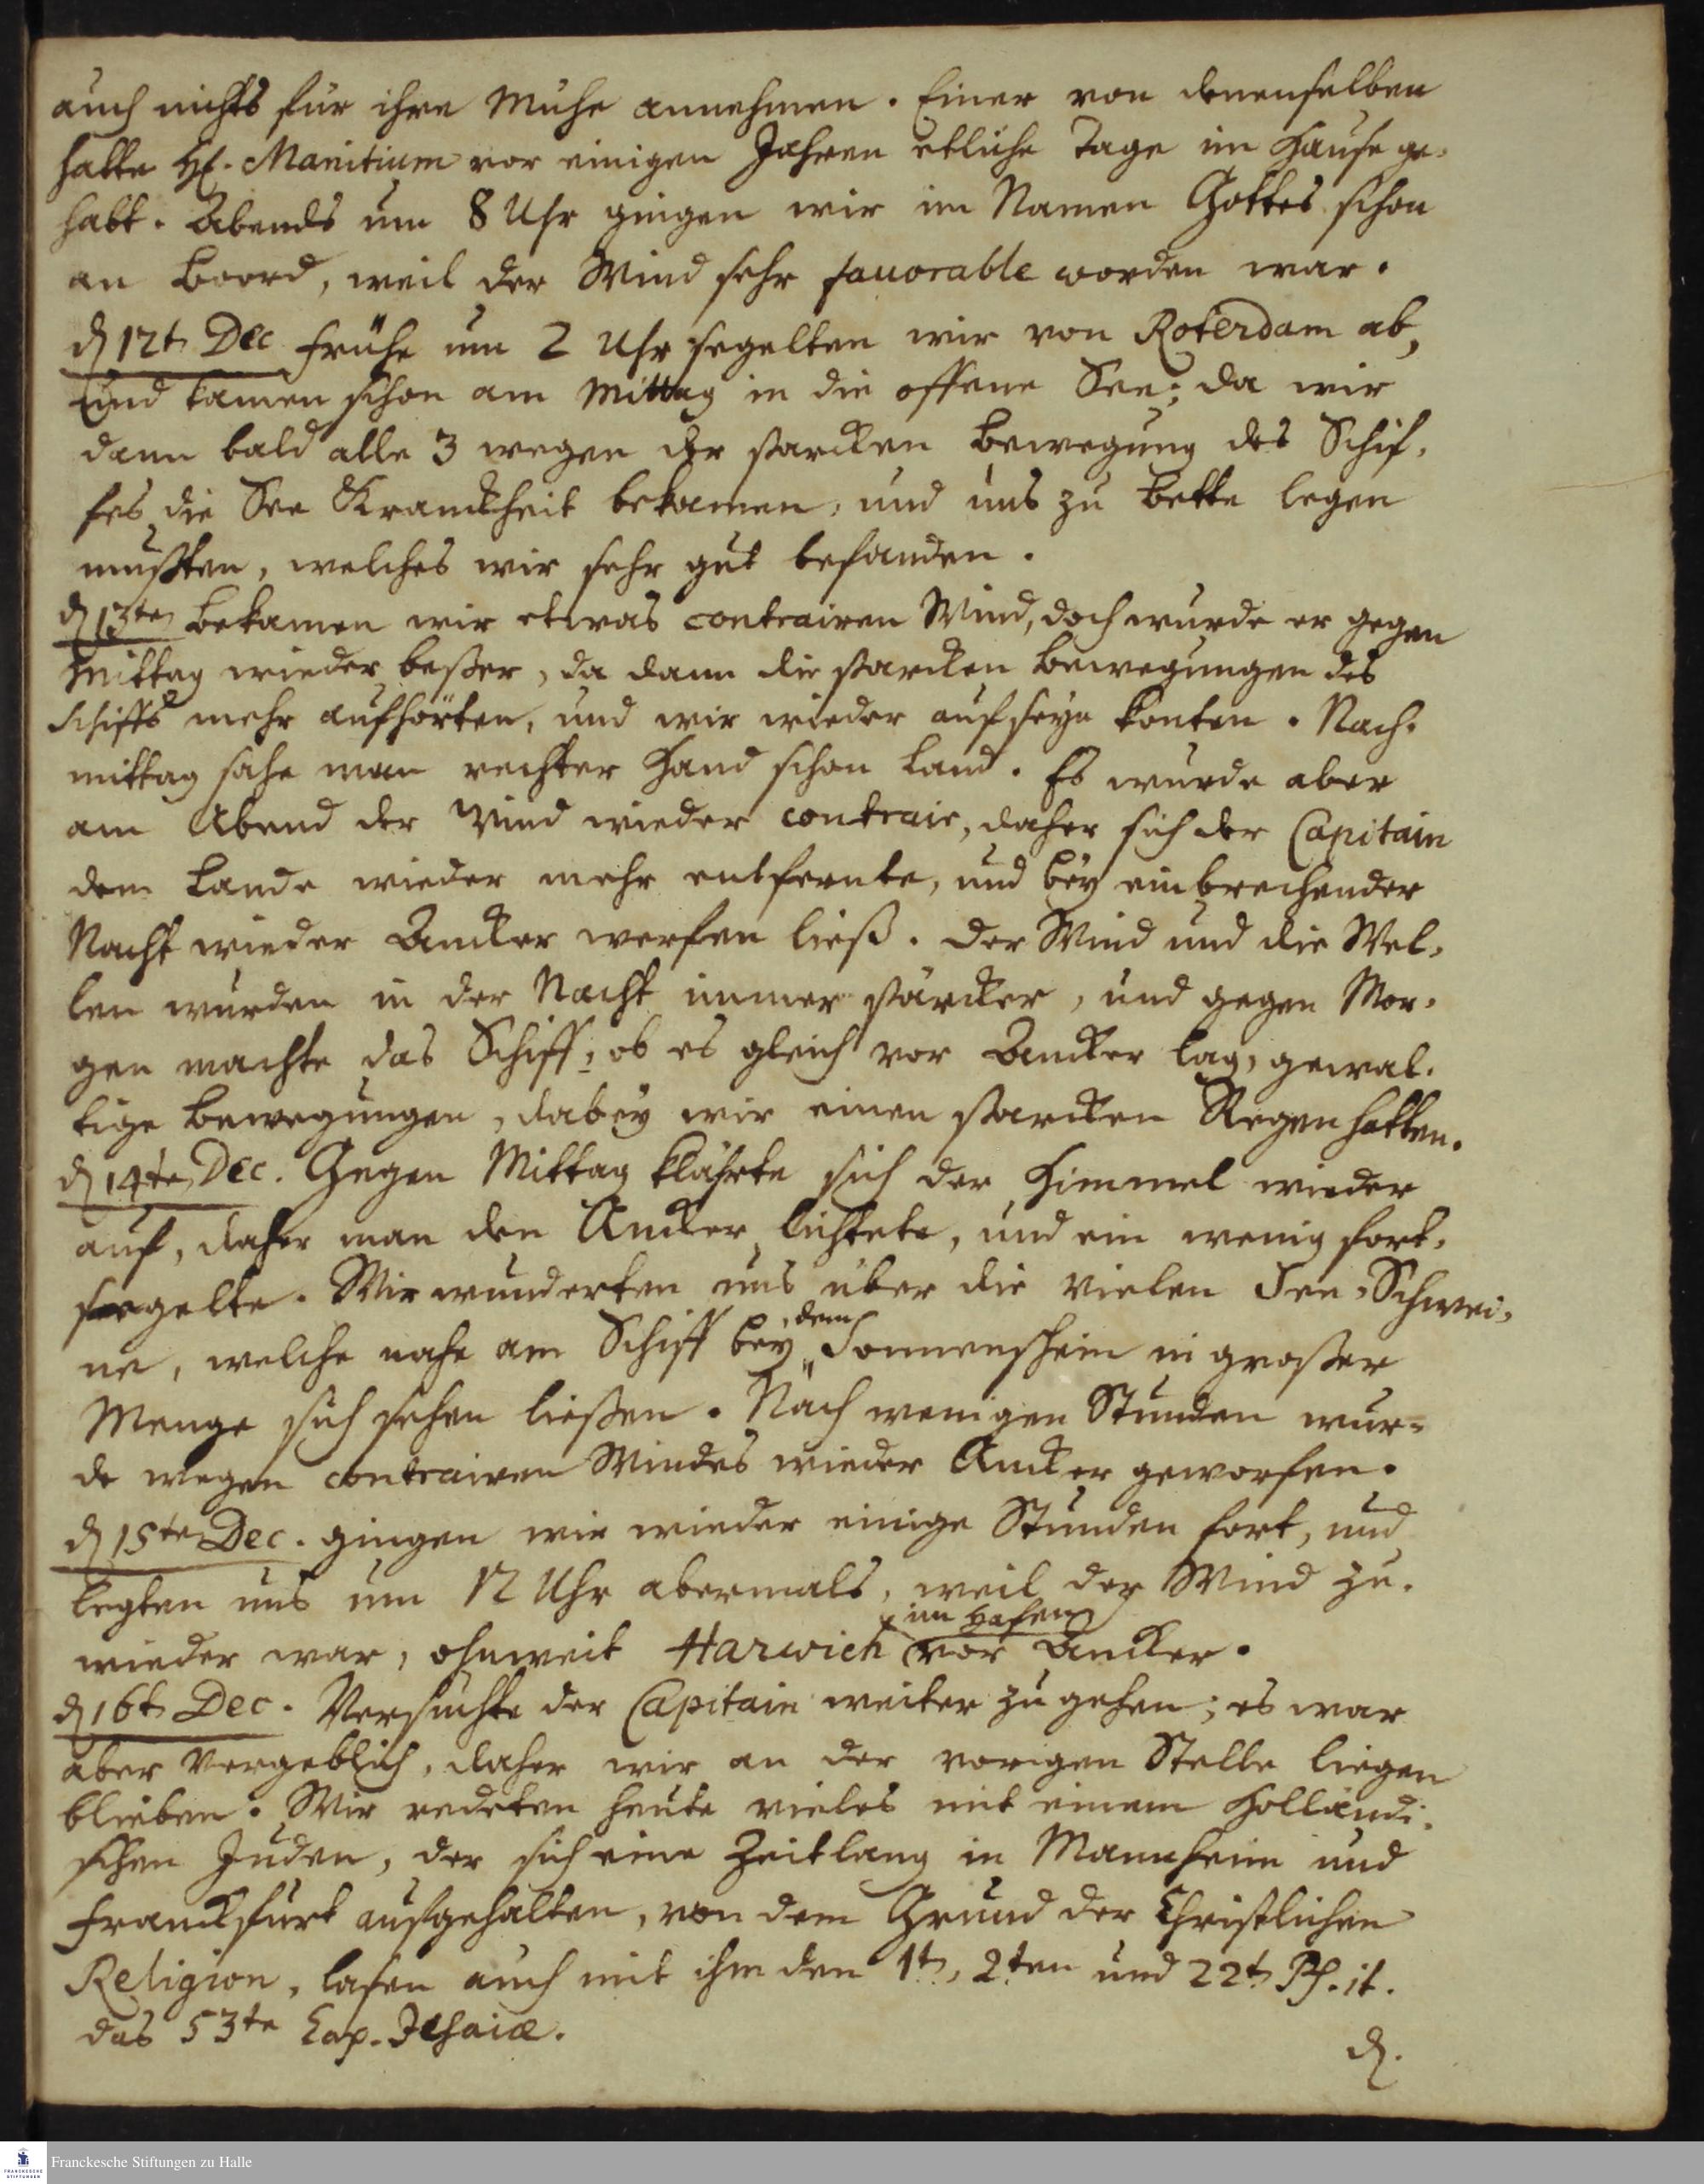 auch nichts für ihre Mühe annehmen. Einer von denenselben
hatte H. Manitium vor einigen Jahren etliche Tage im Hause ge-
habt. Abends um 8 Uhr gingen wir im Namen Gottes schon
an Boord, weil der Wind sehr favorable worden war.
d 12t Dec frühe um 2 Uhr segelten wir von Roterdam ab,
und kamen schon am Mittag in die offene See; da wir
dann bald alle 3 wegen der starcken Bewegung des Schif-
fes die See Kranckheit bekamen, und uns zu Bette legen
mußten, welches wir sehr gut befanden.
d 13ten Bekamen wir etwas contrairen Wind, doch wurde er gegen
Mittag wieder beßer, da dann die starcken Bewegungen des
Schiffs mehr aufhörten, und wir wieder auf seyn konten. Nach-
mittag sahe man rechter Hand schon Land. Es wurde aber
am Abend der Wind wieder contrair, daher sich der Capitain
dem Lande wieder mehr entfernte, und bey einbrechender
Nacht wieder Ancker werfen ließ. Der Wind und die Wel-
len wurden in der Nacht immer stärcker, und gegen Mor-
gen machte das Schiff, ob es gleich vor Ancker lag, gewal-
tige Bewegungen, dabey wir einen starcken Regen hatten.
d 14ten Dec. Gegen Mittag klährte sich der Himmel wieder
auf, daher man den Ancker lichtete, und ein wenig fort-
segelte. Wir wunderten uns über die vielen See-Schwei-
ne, welche nahe am Schiff bey dem Sonnenschein in großer
Menge sich sehen ließen. Nach wenigen Stunden wur-
de wegen contrairen Windes wieder Ancker geworfen.
d 15ten Dec. gingen wir wieder einige Stunden fort, und
legten uns um 12 Uhr abermals, weil der Wind zu-
wieder war, ohnweit Harwich im Hafen vor Ancker.
d 16t Dec. Versuchte der Capitain weiter zu gehen; es war
aber vergeblich, daher wir an der vorigen Stelle liegen
blieben. Wir redeten heute vieles mit einem Holländi-
schen Juden, der sich eine Zeitlang in Mannheim und
Franckfurt aufgehalten, von dem Grund der Christlichen
Religion, lasen auch mit ihm den 1t, 2ten und 22t Ps. it.
das 53te Cap. Jesaiæ.
d.
Franckesche Stiftungen zu Halle